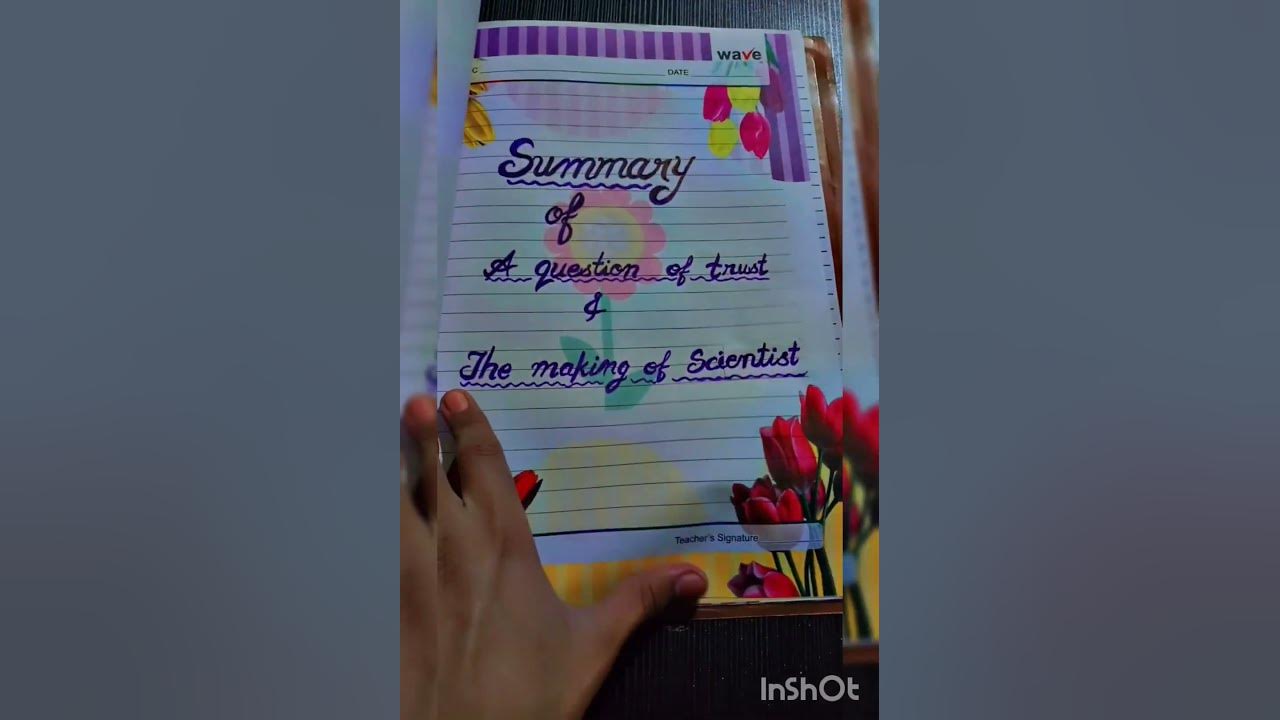 wave
C
DATE
Summary
of
A question of trust
&
The making of Scientist
Teacher's Signature
InShOt